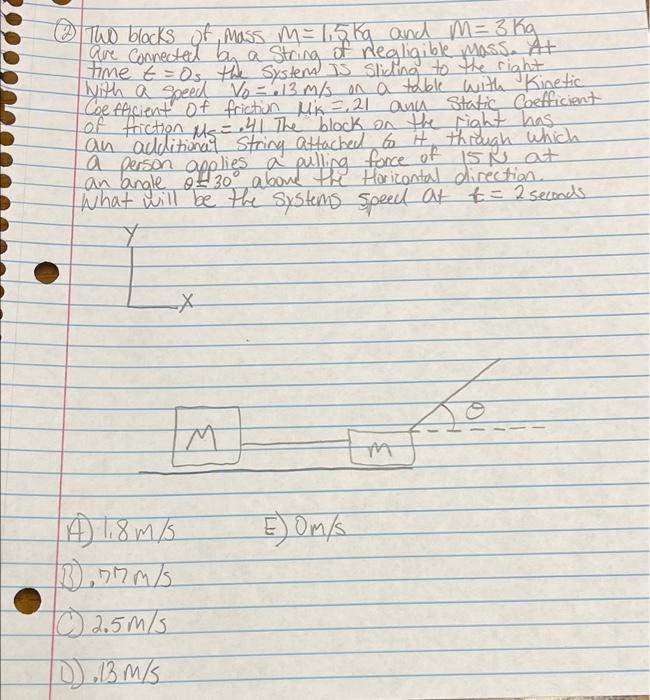 ② Two blocks of mass m=1.5kg and M=3kg
are connected by a string of negligible mass. At
time t=0s the system is sliding to the right
with a speed V₀=.13 m/s on a table with Kinetic
Coefficient of friction μk=.21 and static Coefficient
of friction μs=.41 The block on the right has
an additional string attached to it, through which
a person applies a pulling force of 15N at
an angle θ=30° above the Horizontal direction.
What will be the systems speed at t=2seconds
Y
X
θ
M
m
A) 1.8m/s E) 0m/s
B) .77m/s
C) 2.5m/s
D) .13m/s